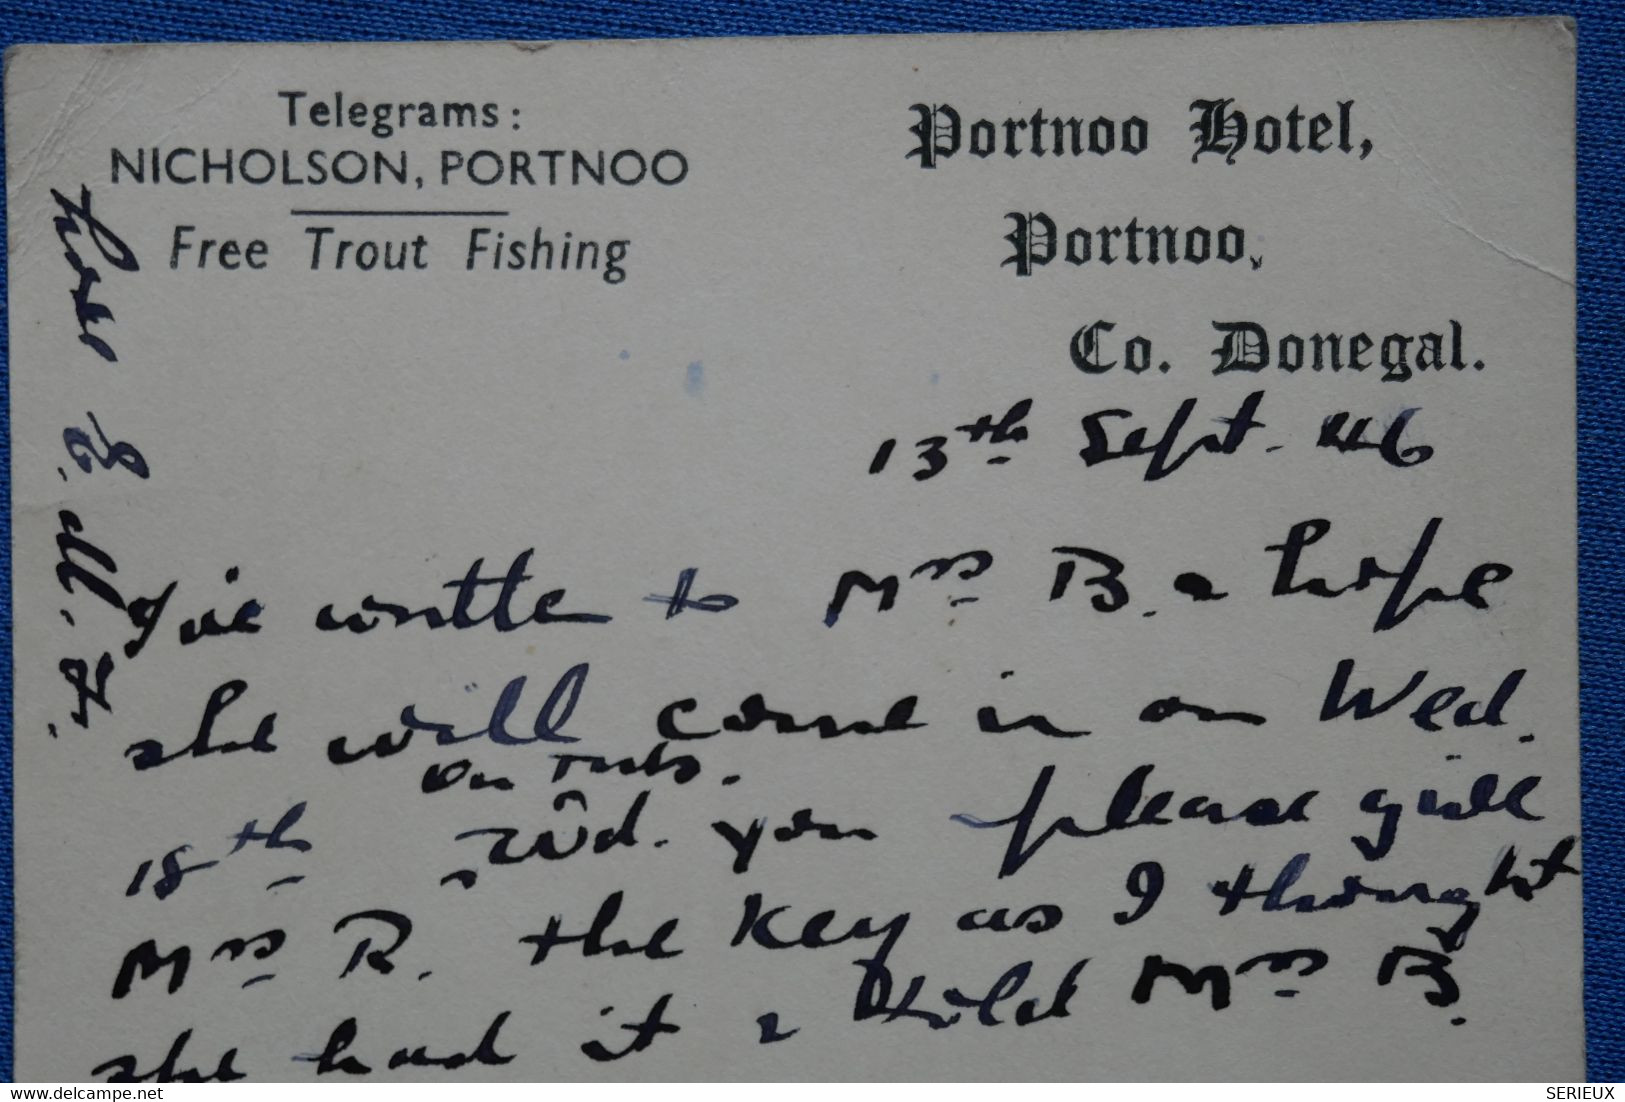 Telegrams:
NICHOLSON, PORTNOO
Free Trout Fishing
Portnoo Hotel,
Portnoo,
Co. Donegal.
13th Sept. 46
I've written to Mrs B. & hope
she will come in on Wed.
on Tues.
18th wd. you please give
Mrs R. the key as I thought
she had it & told Mrs B.
SERIEUX